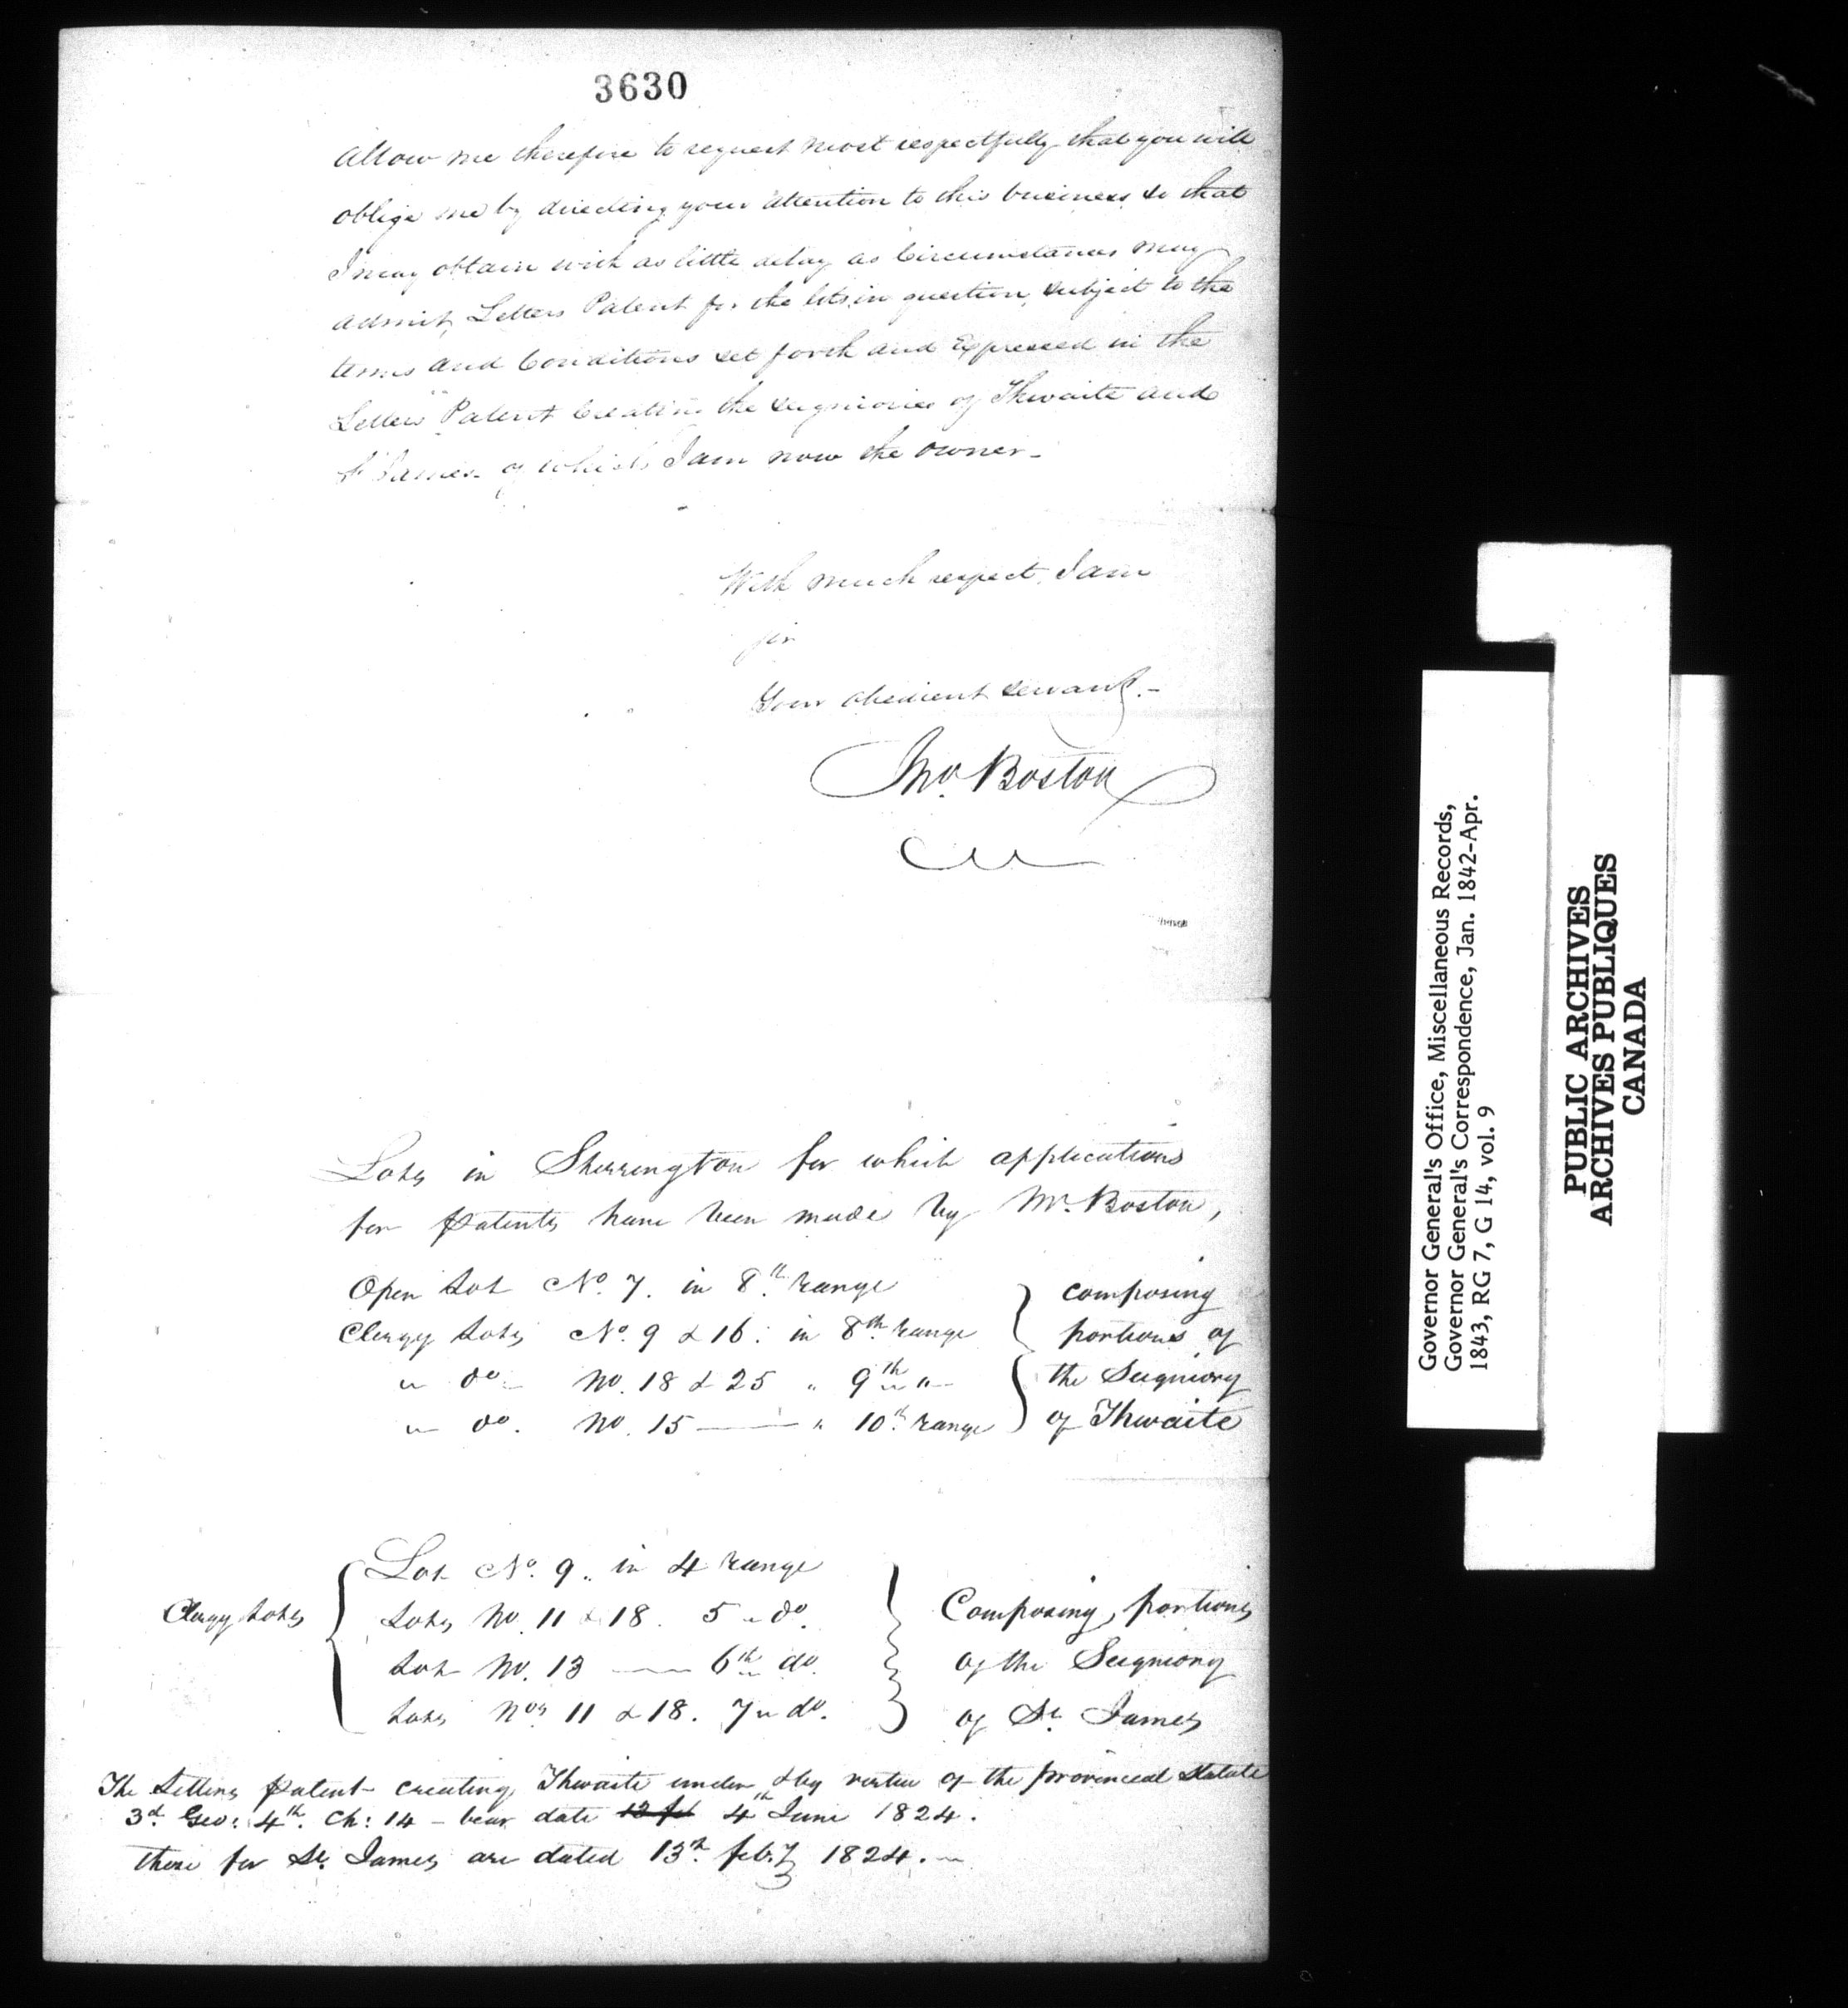 3630
Allow me therefore to request most respectfully that you will
oblige me by directing your attention to this business so that
I may obtain with as little delay as Circumstances may
admit, Letters Patent for the lots in question, subject to the
terms and Conditions set forth and Expressed in the
Letters Patent Creating the Seigniories of Thwaite and
St James of which I am now the owner -
With much respect, I am
Sir
Your obedient servant. -
Jno. Boston
Lots in Sherrington for which applications
for Patents have been made by Mr. Boston,
Open Lot No. 7. in 8th. range
Clergy Lots No. 9 & 16. in 8th. range
" do. No. 18 & 25 " 9th "
" do. No. 15 —— " 10th. range
} composing
portions of
the Seigniory
of Thwaite
Clergy Lots {
Lot No. 9.. in 4 range
Lots No. 11 & 18. 5 " do.
Lot No. 13 —— 6th do.
Lots Nos 11 & 18. 7 " do.
} Composing portions
of the Seigniory
of St. James
The Letters Patent creating Thwaite under & by virtue of the provincial statute
3d. Geo: 4th. Ch: 14 - bear date 13 feb 4th June 1824.
those for St. James are dated 13th. feb.y 1824. -
Governor General's Office, Miscellaneous Records,
Governor General's Correspondence, Jan. 1842-Apr.
1843, RG 7, G 14, vol. 9
PUBLIC ARCHIVES
ARCHIVES PUBLIQUES
CANADA